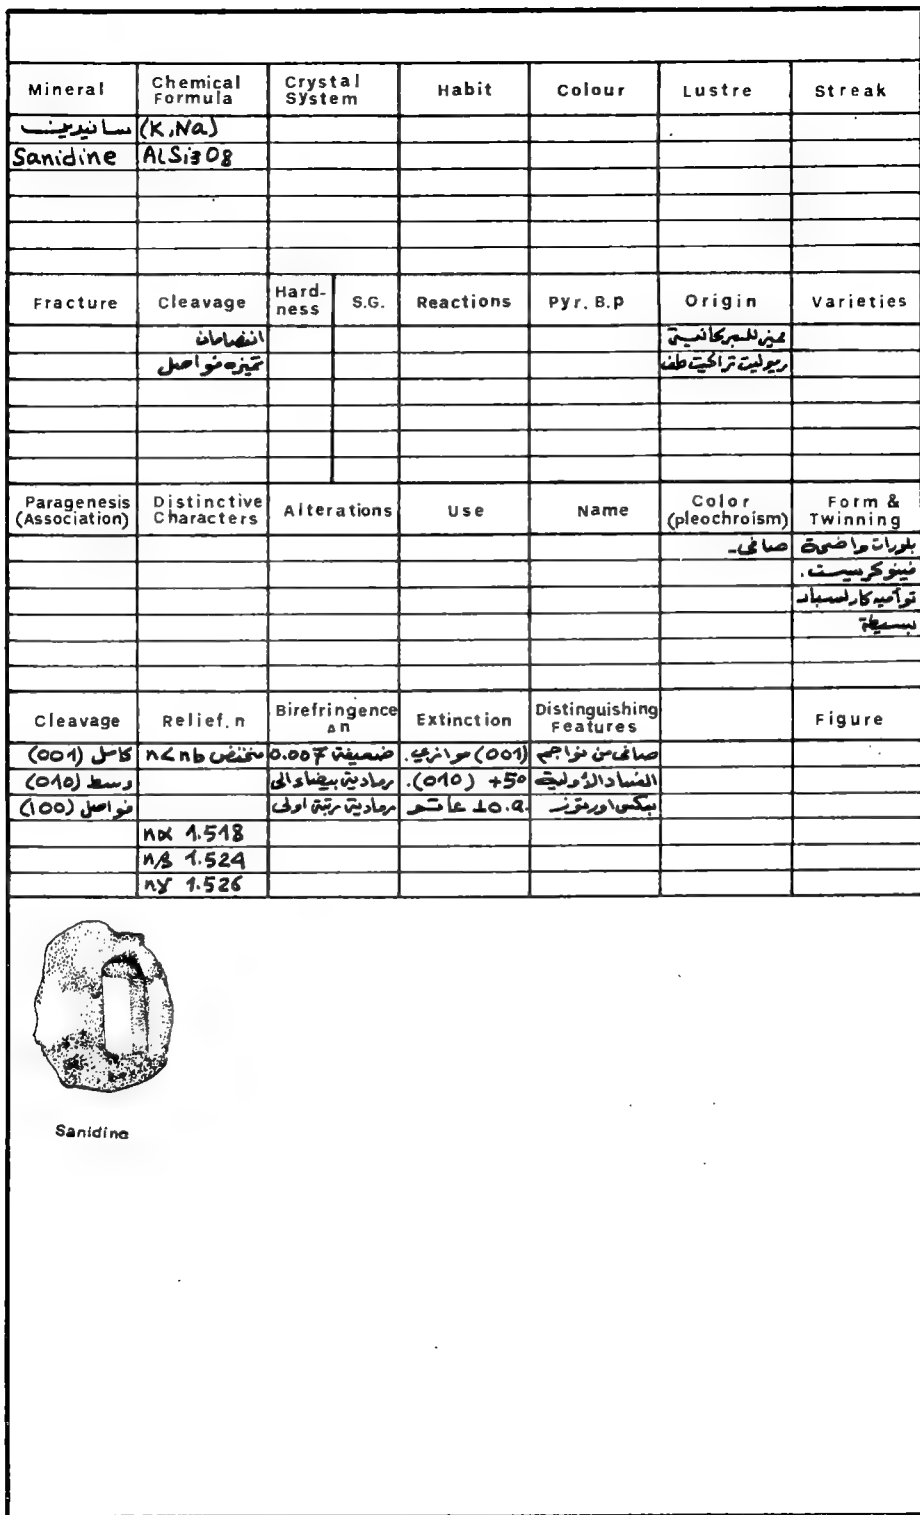 Mineral Chemical Formula Crystal System Habit Colour Lustre Streak
سانيدين (K,Na)
Sanidine AlSi3O8
Fracture Cleavage Hard-ness S.G. Reactions Pyr. B.p Origin Varieties
انفصامان مميز للبركانية
تميزه فواصل ريوليت تراكيت طف
Paragenesis (Association) Distinctive Characters Alterations Use Name Color (pleochroism) Form & Twinning
صافي - بلورات واضحة
فينوكريست .
توأمية كارلسباد
بسيطة
Cleavage Relief. n Birefringence Δn Extinction Distinguishing Features Figure
(001) كامل منخفض n<nb ضعيفة 0.007 (001) موازي . صافي من نواتج
(010) وسط رمادية بيضاء الى (010) +5° . الفساد الأولية
(100) فواصل رمادية رتبة اولى ⊥o.a.
nα 1.518
nβ 1.524
nγ 1.526
Sanidine